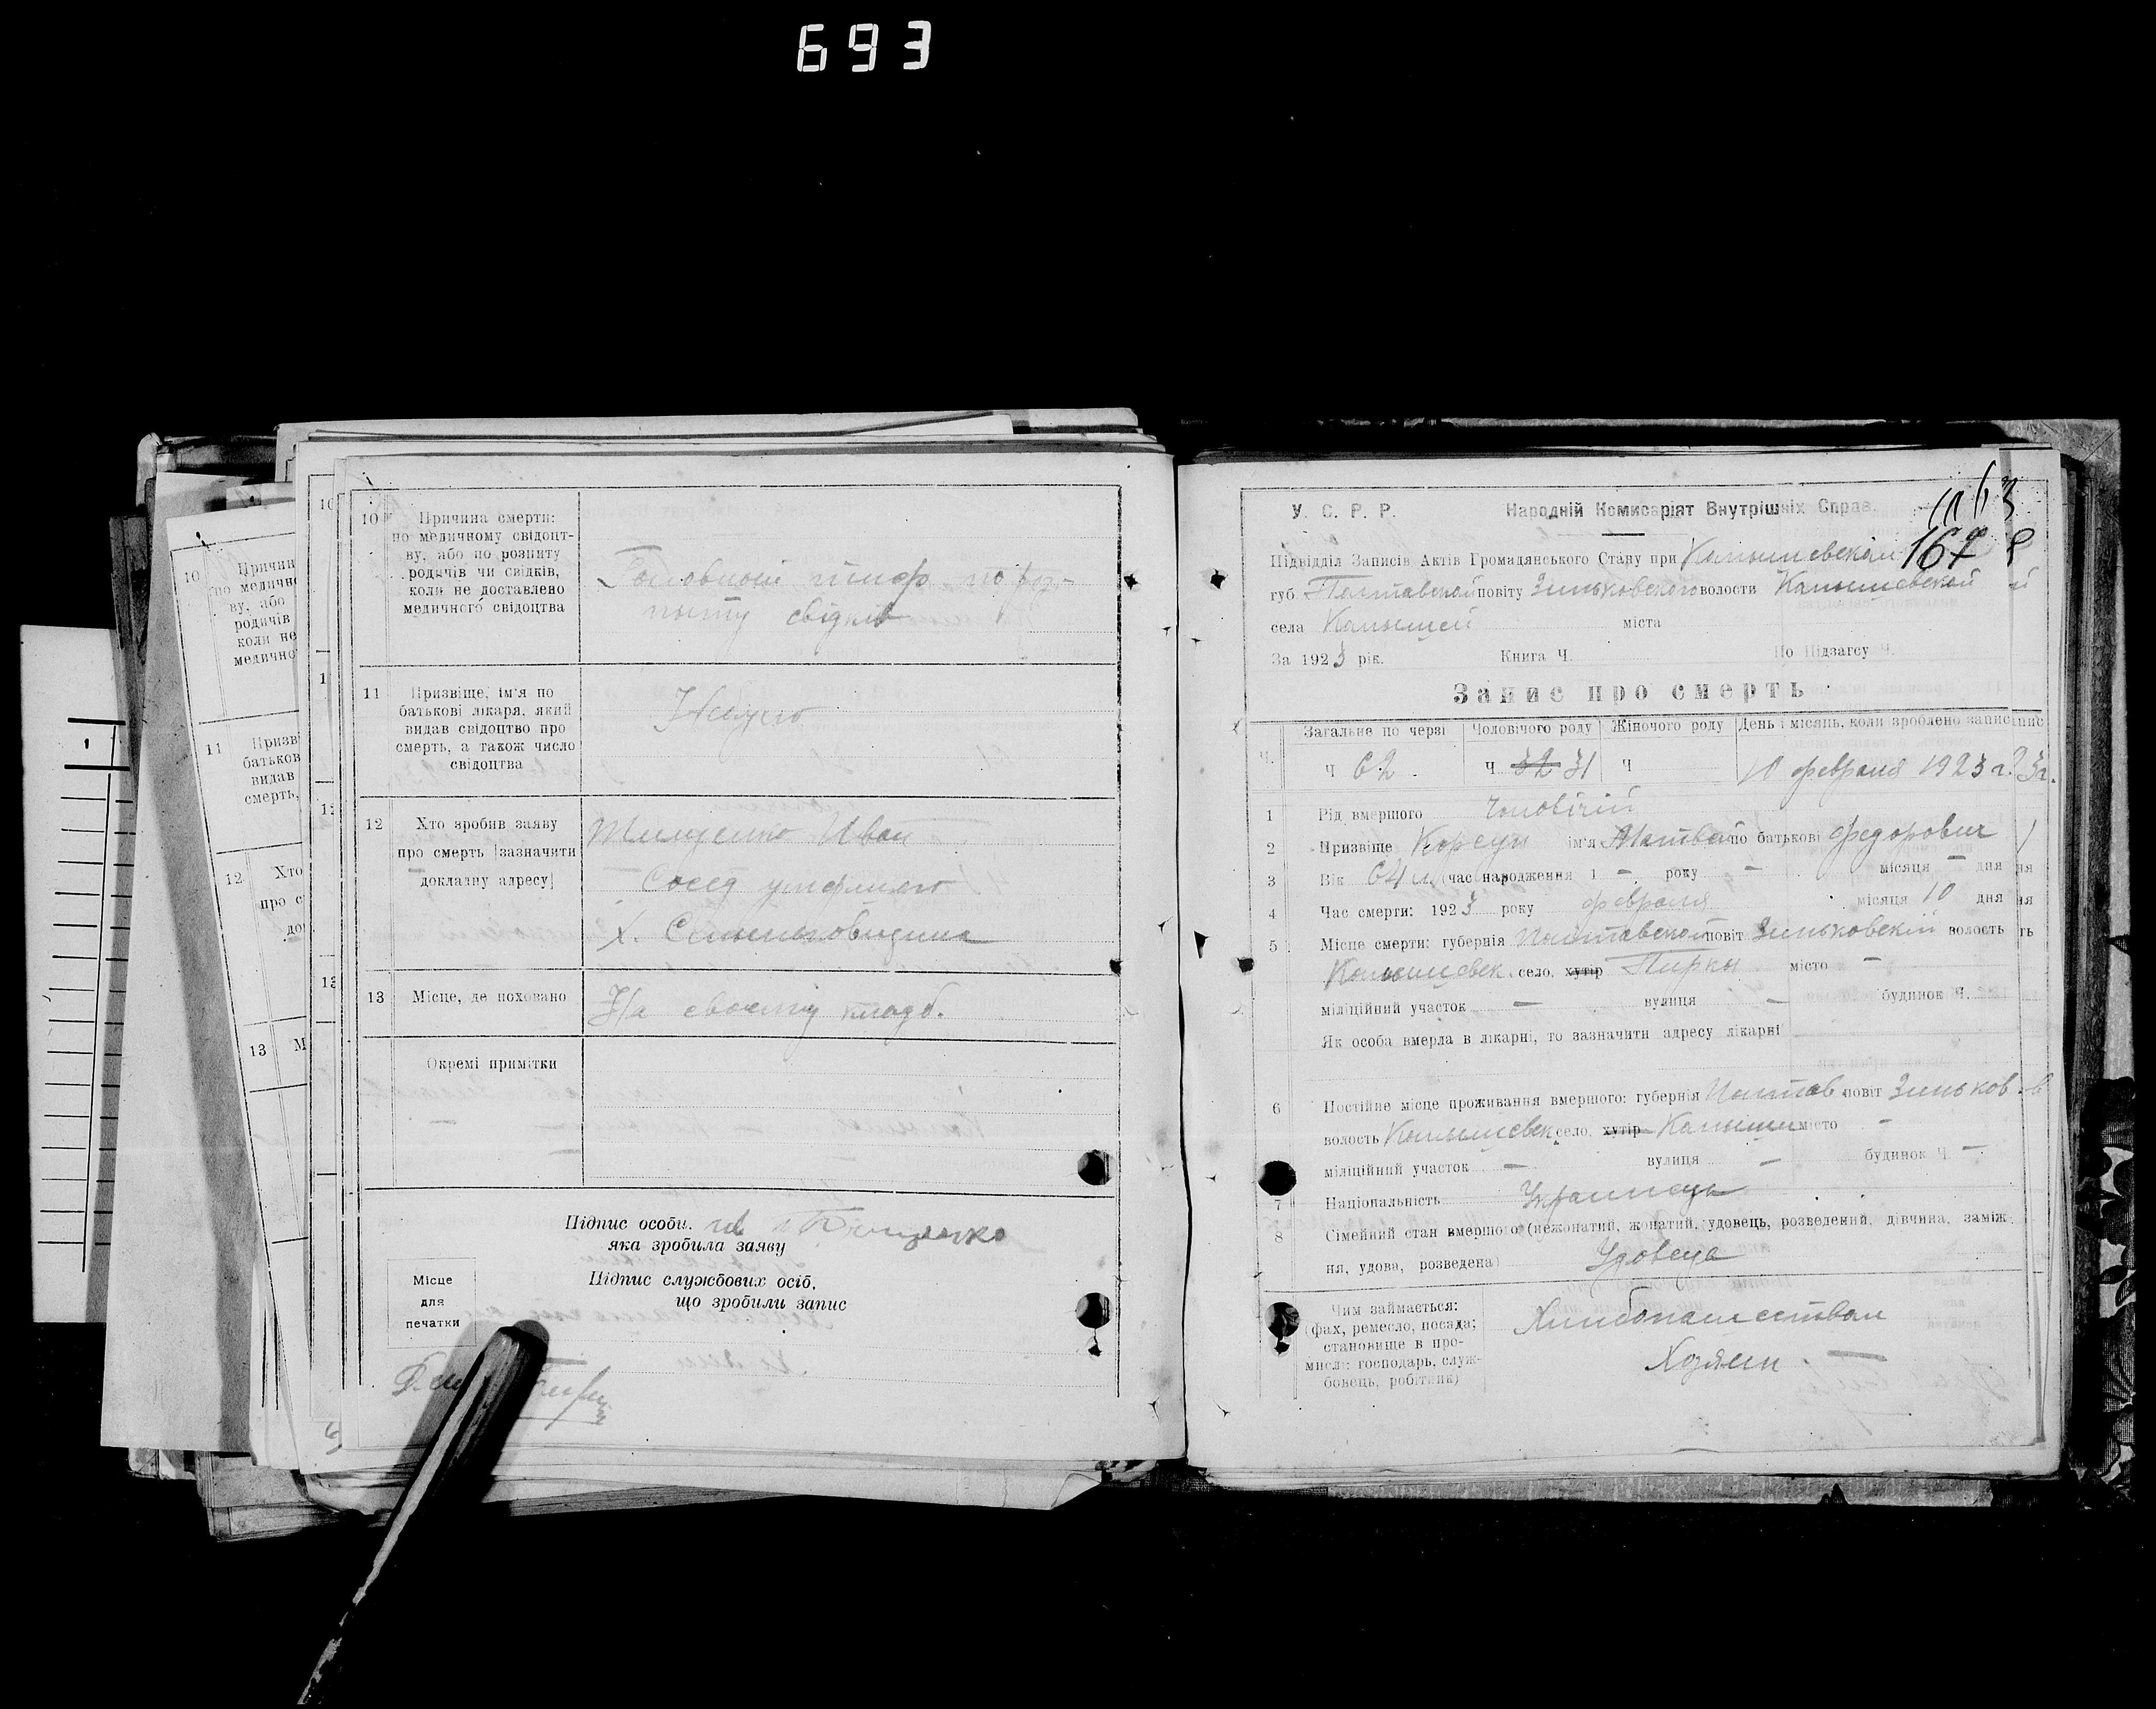 693
10
Причина смерти:
по медичному свідоцт-
ву, або по розпиту
родичів чи свідків,
коли не доставлено
медичного свідоцтва
Головной тиф по роз-
питу свідків
11
Призвіще, ім'я по
батькові лікаря, який
видав свідоцтво про
смерть, а також число
свідоцтва
12
Хто зробив заяву
про смерть [зазначити
докладну адресу]
Иван
Сосед умершего
Х.
13
Місце, де поховано
На кладб.
Окремі примітки
Підпис особи,
яка зробила заяву
Підпис службових осіб,
що зробили запис
Місце
для
печатки
У. С. Р. Р. Народній Комисаріят Внутрішніх Справ.
163
167
Підвідділ Записів Актів Громадянського Стану при Камышевской
губ. Полтавской повіту Зиньковского волости Камышевской
села Камышей міста
За 1923 рік. Книга Ч. По Підзагсу Ч.
Запис про смерть
Ч. Загальне по черзі Чоловічого роду Жіночого роду День і місяць, коли зроблено запис
Ч 62 Ч 32 31 Ч 10 февраля 1923 г.
1 Рід вмершого Чоловічій
2 Призвіще Корсун ім'я Матвей по батькові Федорович
3 Вік 64 л. час народження 1 – року – місяця – дня
4 Час смерти: 1923 року февраля місяця 10 дня
5 Місце смерти: губернія Полтавской повіт Зиньковскій волость
Камышевск. село, хутір Пирки місто –
міліційний участок – вулиця – будинок Ч.
Як особа вмерла в лікарні, то зазначити адресу лікарні
6 Постійне місце проживання вмершого: губернія Полтав. повіт Зиньков.
волость Камышевск. село, хутір Камыши місто –
міліційний участок – вулиця – будинок Ч. –
7 Національність Украинець
8 Сімейний стан вмершого (нежонатий, жонатий, удовець, розведений, дівчина, заміж-
ня, удова, розведена) Удовець
Чим займається:
(фах, ремесло, посада;
становище в про-
мислі: господарь, служ-
бовець, робітник)
Хлибопашеством
Хозяин. –